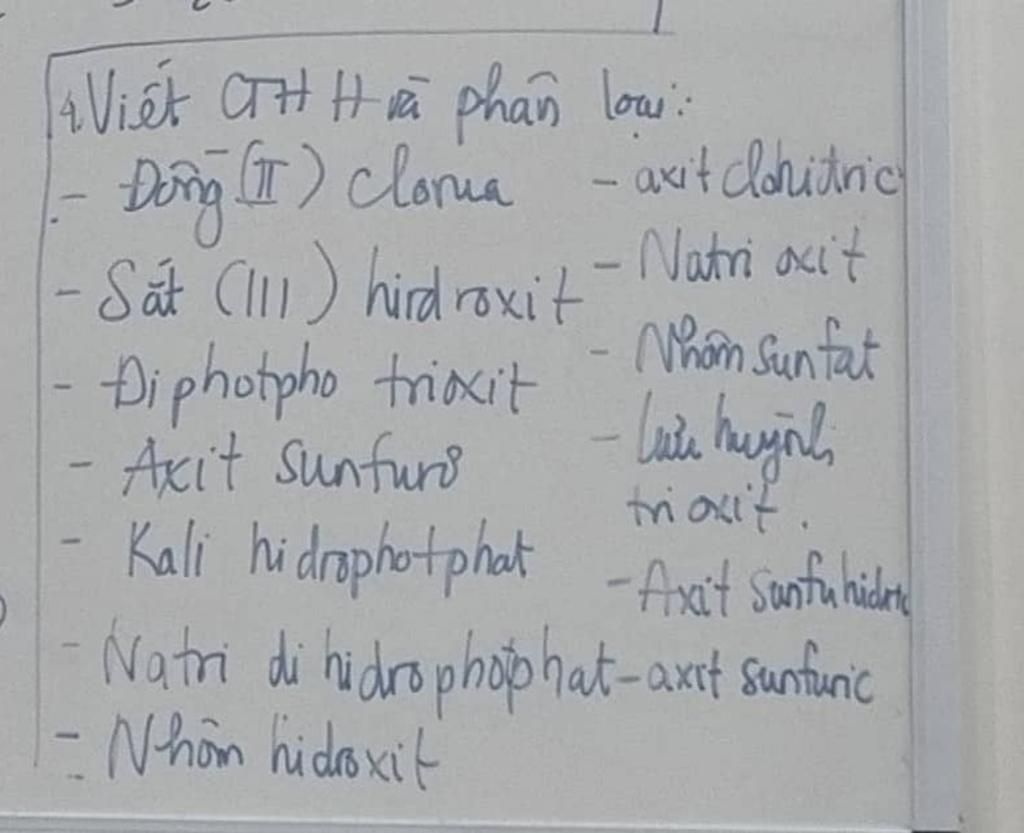 4. Viết CTHH và phân loại:
- Đồng (II) clorua
- Sắt (III) hirdroxit
- Điphotpho trioxit
- Axit sunfurơ
- Kali hidrophotphat
- Natri đi hidrophotphat
- Nhôm hidroxit
- axit clohidric
- Natri oxit
- Nhôm sunfat
- Lưu huỳnh
tri oxit.
- Axit sunfuhidric
- axit sunfuric